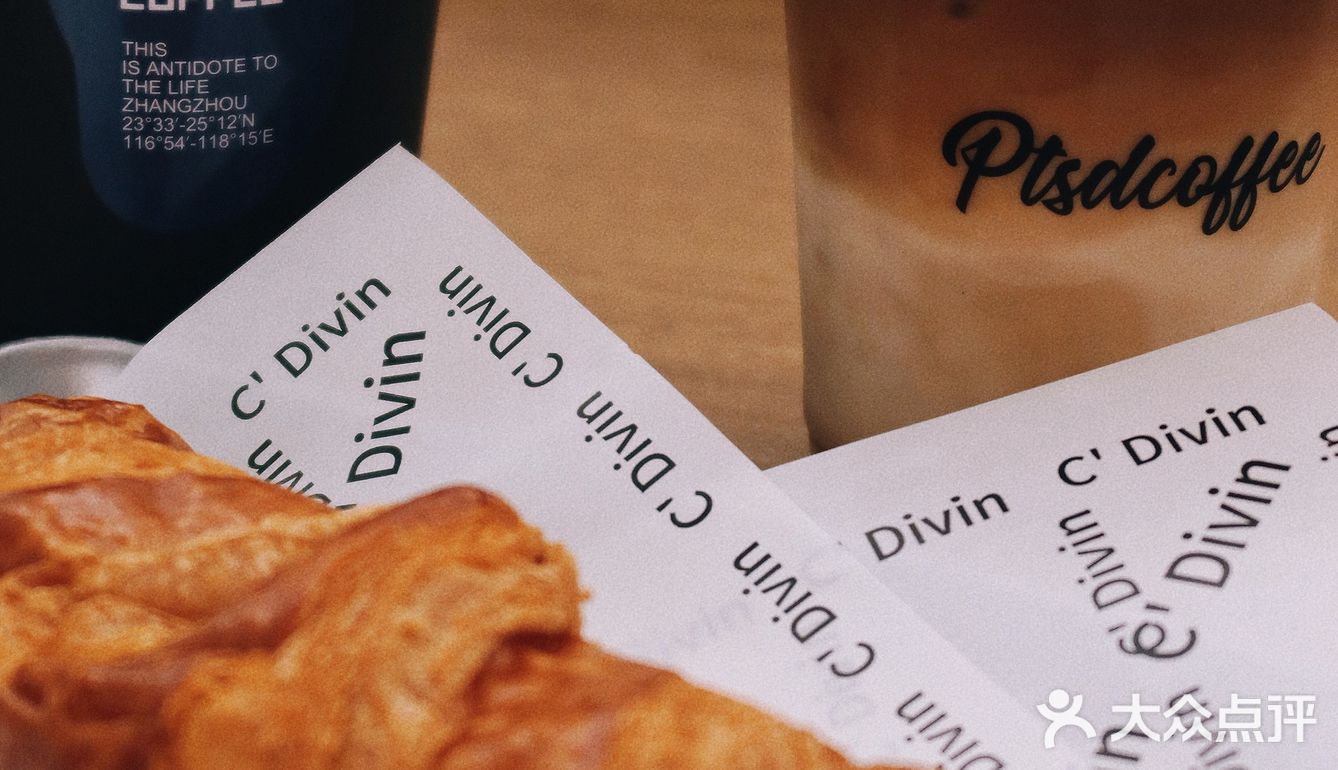 COFFEE
THIS
IS ANTIDOTE TO
THE LIFE
ZHANGZHOU
23°33′-25°12′N
116°54′-118°15′E
Ptsdcoffee
C' Divin
Divin
C' Divin
C' Divin
C' Divin
Divin
Divin
C' Divin
Divin
Divin
C' Divin
大众点评